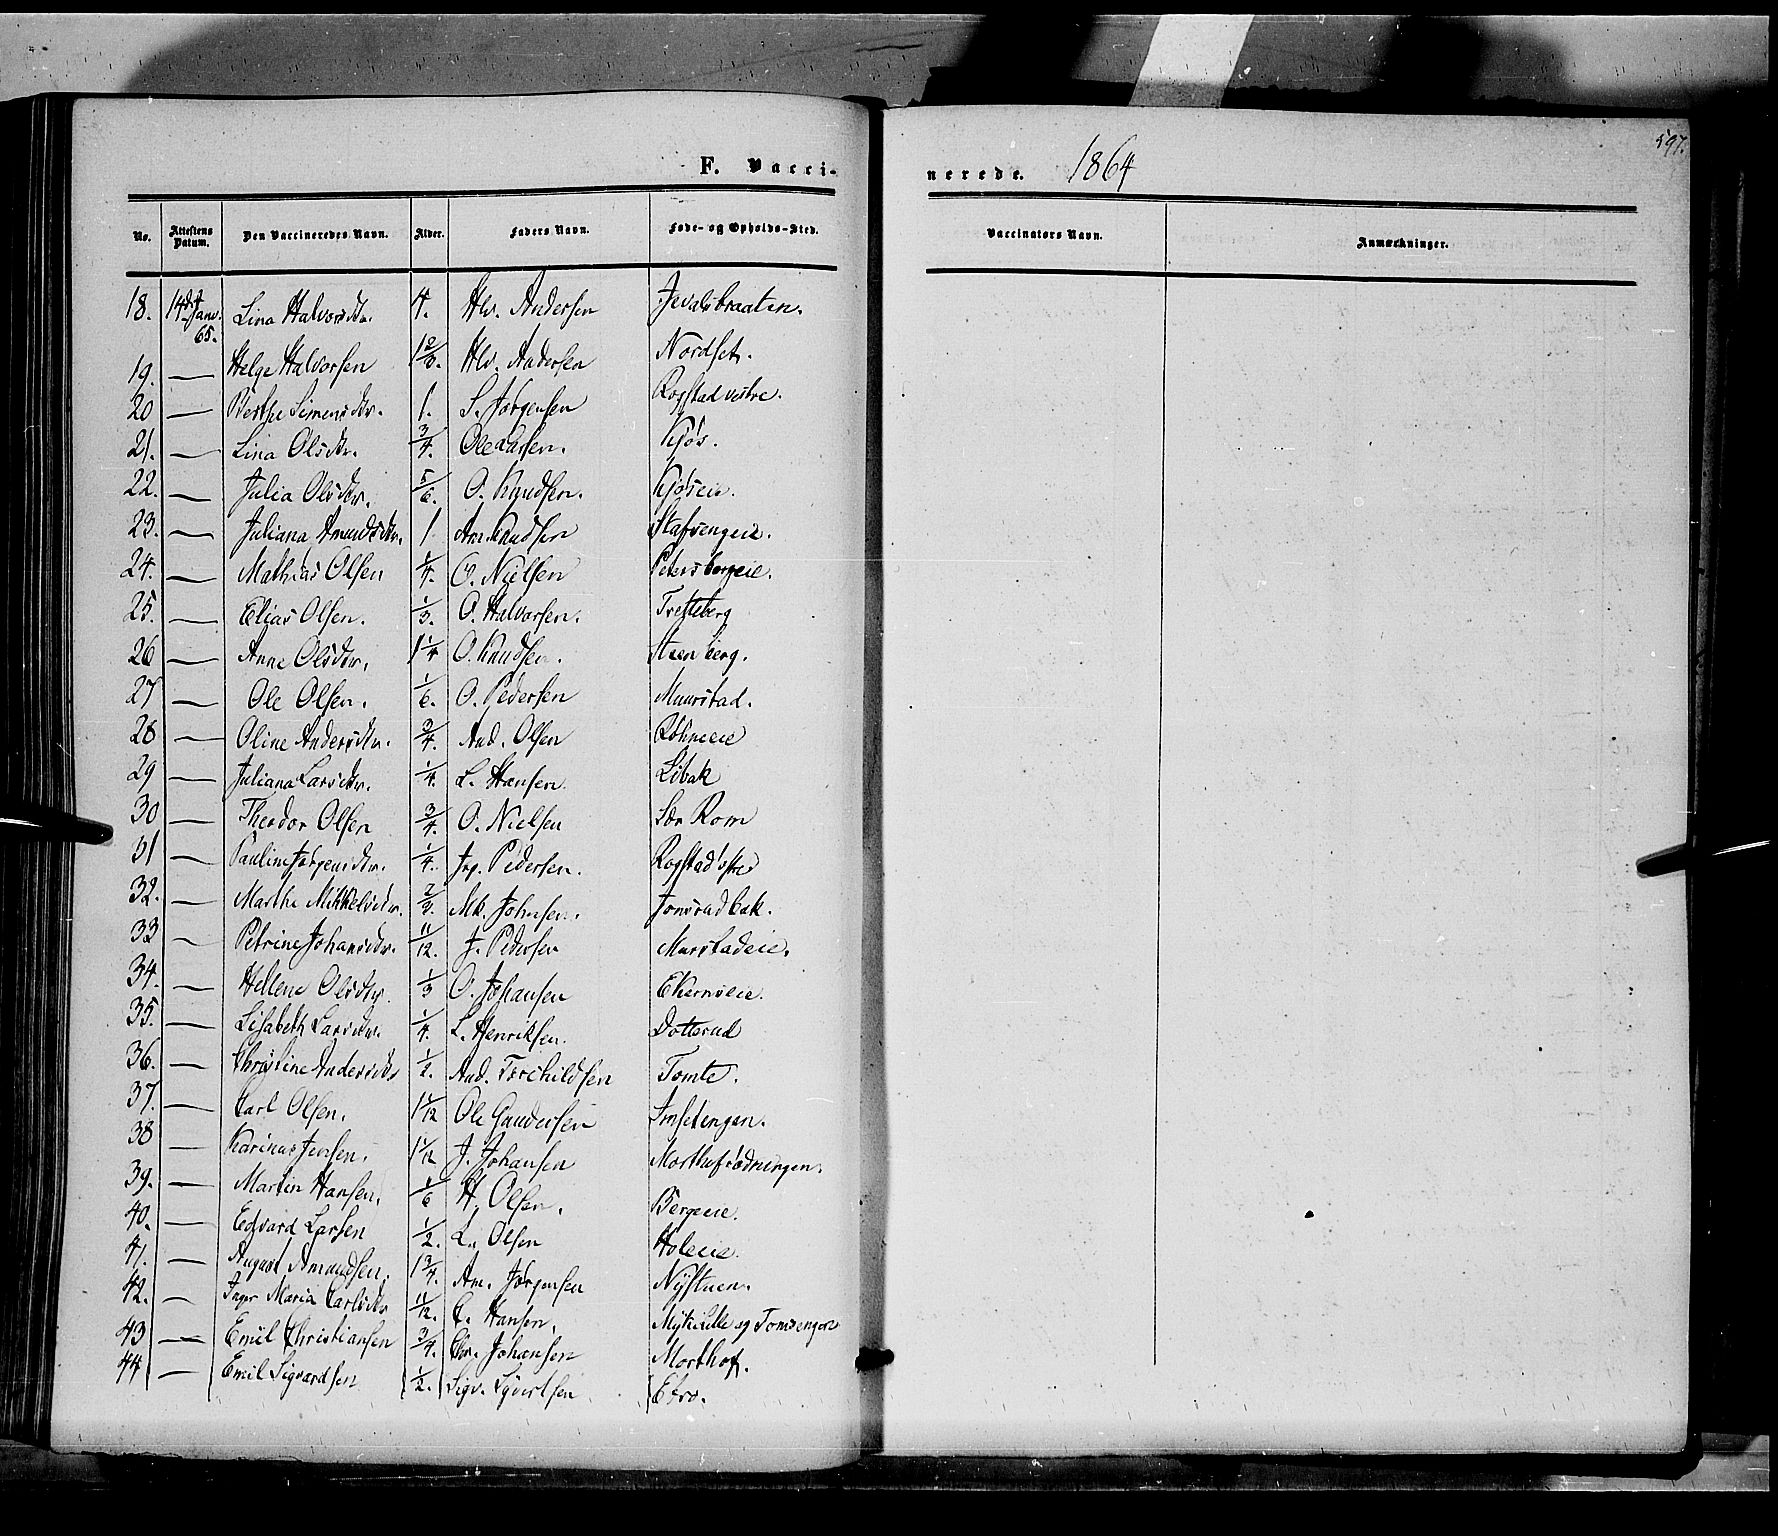 597.
F. Vaccinerede. 1864
No. Attestens Datum. Den Vaccineredes Navn. Alder. Faders Navn. Føde- og Opholds-Sted. Vaccinators Navn. Anmærkninger.
18. 14de Janv. 65. Lina Halvorsdtr. 4. Hlv. Andersen
19. — Helge Halvorsen Hlv. Andersen Nordset.
20 — Berthe Simensdtr. 1. S. Jørgensen Rogstad vestre.
21. — Lina Olsdtr. 3/4. Ole Larsen. Kjøs.
22. — Julia Olsdtr. 5/6. O. Knudsen. Kjøseie.
23. — Juliana Amundsdtr. 1 Am. Knudsen Stafsengeie.
24. — Mathias Olsen 1/4. O. Nielsen Petersborgeie.
25. — Elias Olsen. 1/3. O. Halvorsen. Tretteberg
26 — Anne Olsdtr. 1 1/4 O. Knudsen. Steenberg.
27 — Ole Olsen. 1/6. O. Pedersen Muurstad.
28 — Oline Andersdtr. 3/4. And. Olsen Røhneeie
29 — Juliana Larsdtr. 1/4. L. Hansen. Libak
30 — Theodor Olsen 3/4. O. Nielsen Rom
31 — Pauline Jørgensdtr. 1/4. Jrg. Pedersen. Rogstad østre
32. — Marthe Mikkelsdtr. 2/3. Mk. Johnsen. Jonsrudbak.
33 — Petrine Johansdtr. 11/12. J. Pedersen Murstadeie.
34. — Hellene Olsdtr. 1/3 O. Johansen Ekerneie.
35. — Lisabeth Larsdtr. 1/4. L. Henriksen. Dotterud
36. — Christine Andersdtr 1/2. And. Torchildsen Tomte.
37. — Carl Olsen. 1 1/12 Ole Gundersen Imsetengen.
38 — Karinus Jensen. 1 1/12 J. Johansen
39. — Martin Hansen. 1/6 H. Olsen. Bergeeie.
40. — Edvard Larsen 1/2. L. Olsen Holeeie.
41. — August Amundsen. 1 3/4. Am. Jørgensen Nystuen.
42. — Inger Maria Carlsdtr 11/12. C. Hansen. Mykelille og Tomsengen
43 — Emil Christiansen 3/4. Chr. Johansen Morthof.
44 — Emil Sigvardsen 1/2. Sigv. Syvertsen